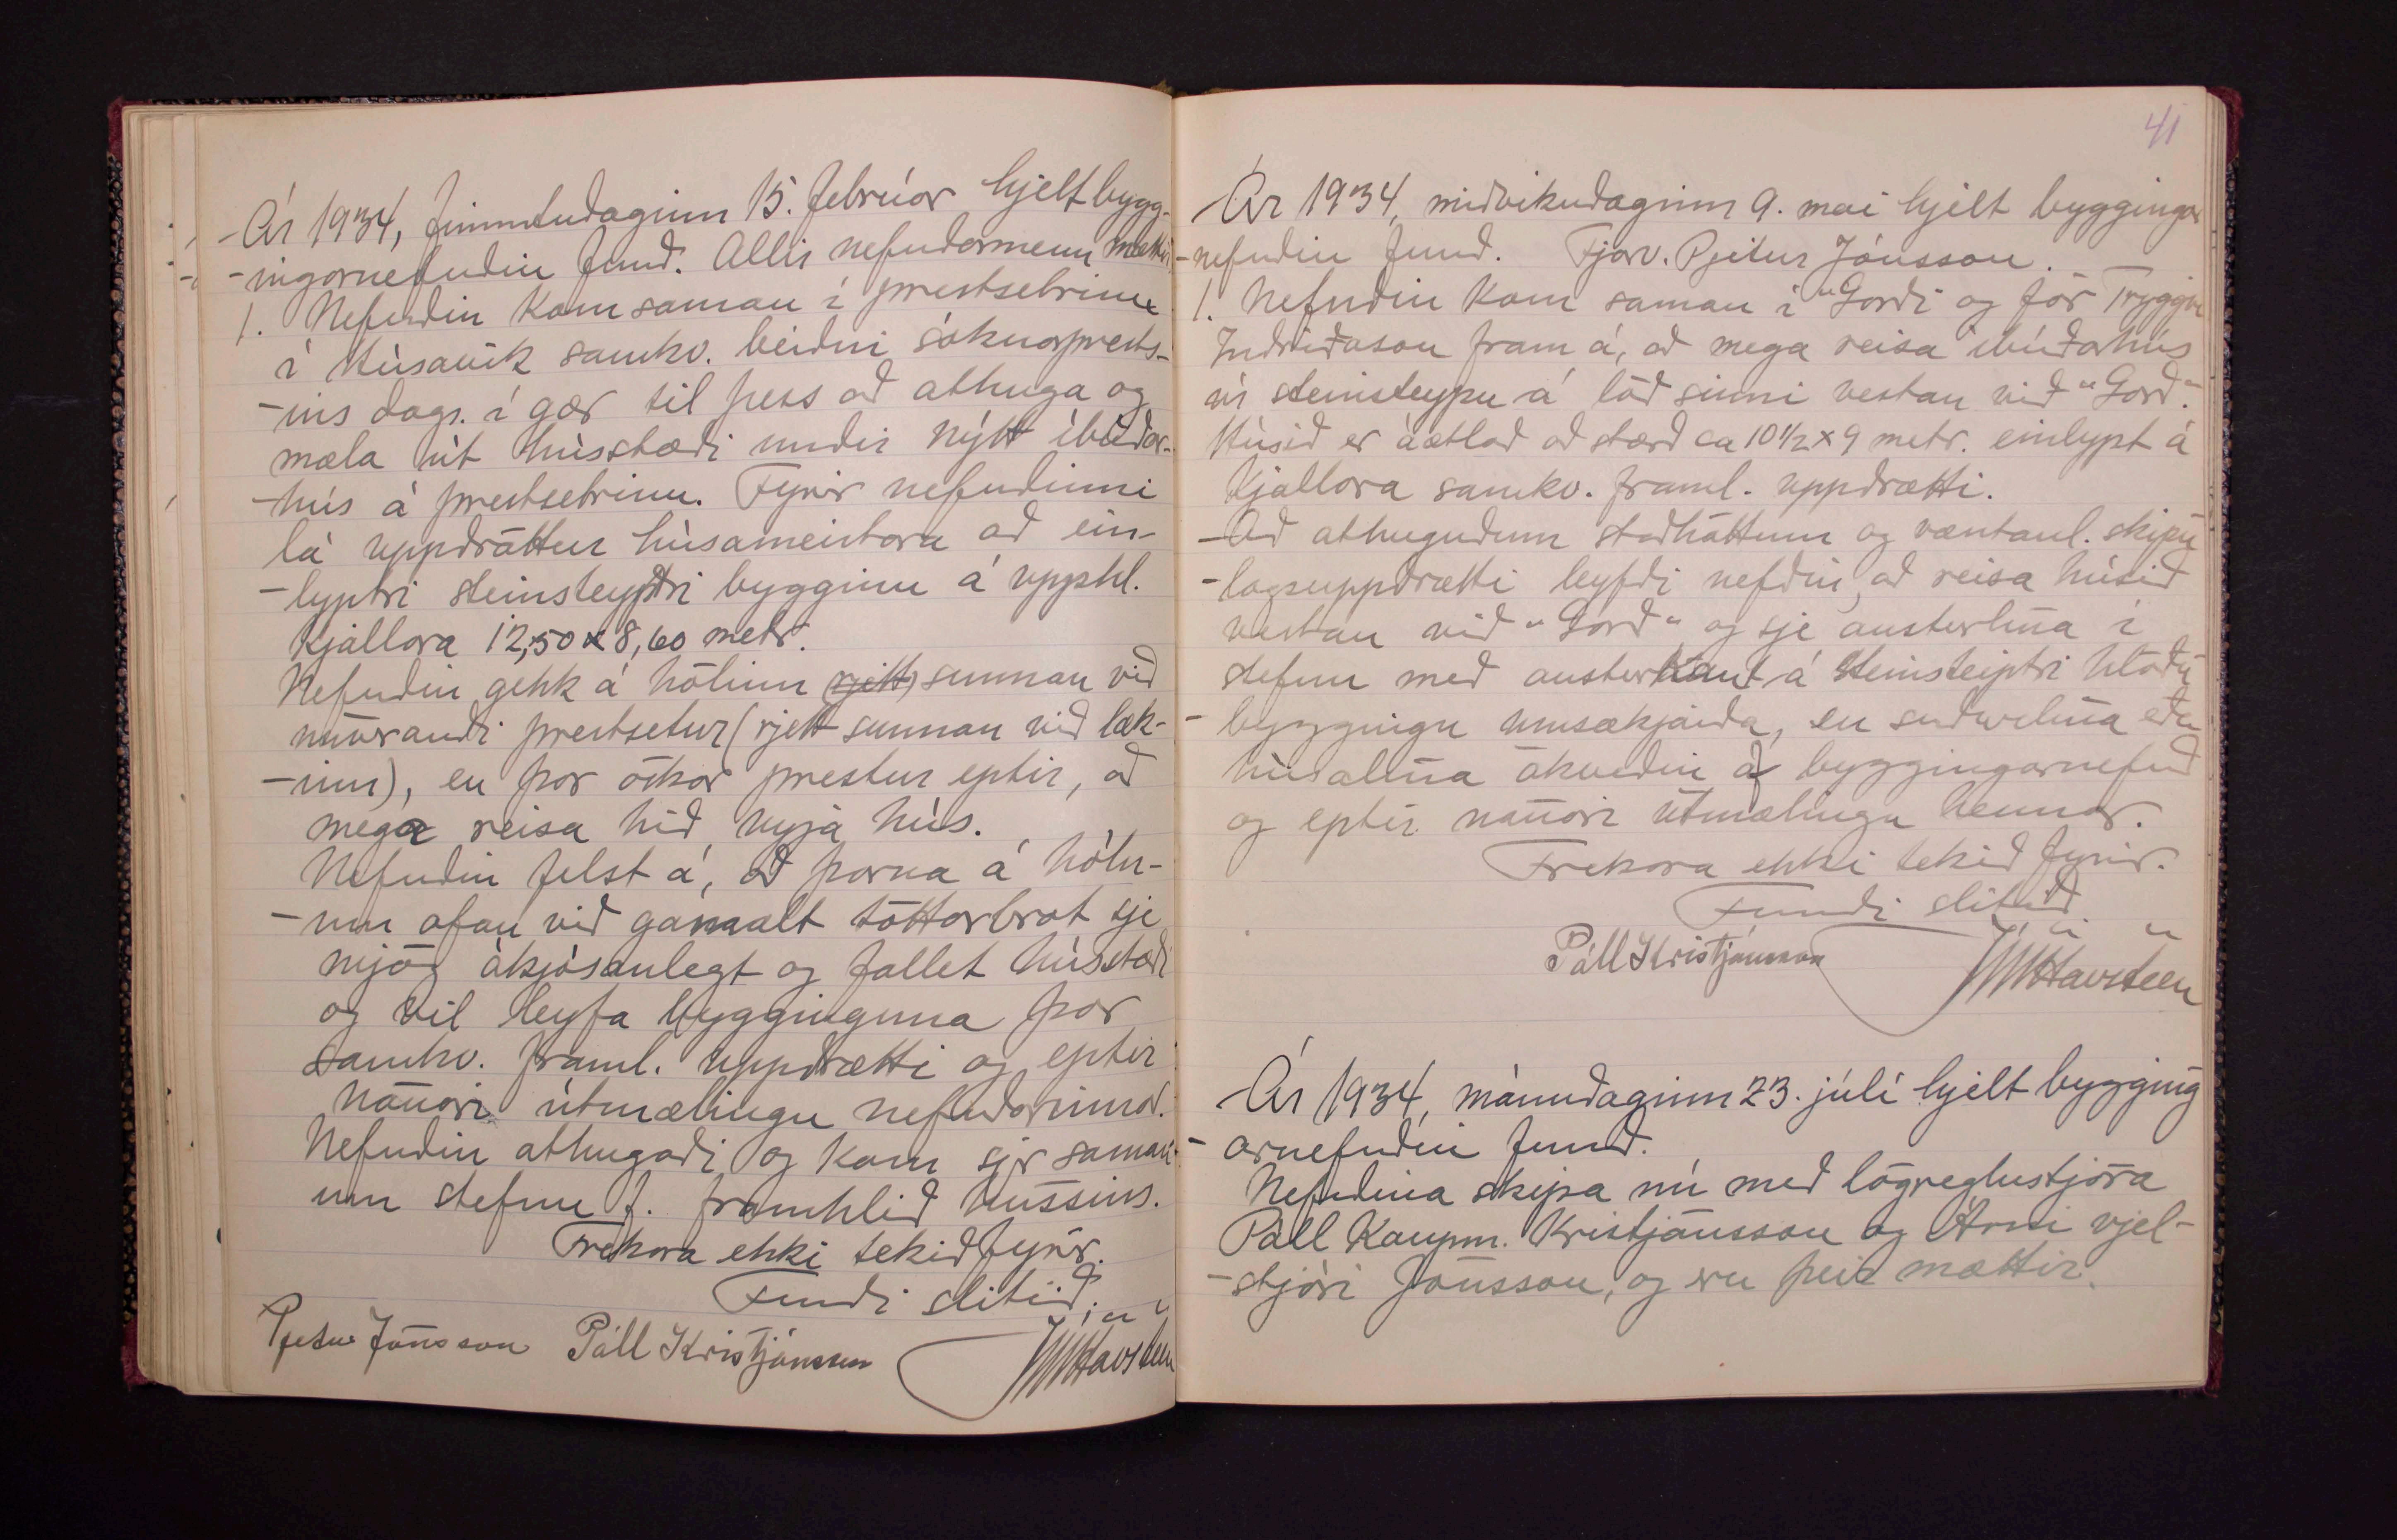 Ár 1934, fimmtudaginn 15. febrúar hjelt bygg-
-ingarnefndin fund. Allir nefndarmenn mættir
1. Nefndin kom saman í prestsetrinu
í Húsavík samkv. beiðni sóknarprests-
-ins dags. í gær til þess að athuga og
mæla út hússtæði undir nýtt íbúðar-
-hús á prestsetrinu. Fyrir nefndinni
lá uppdráttur húsameistara að ein-
-lyptri steinsteyptri bygginu á upphl.
kjallara 12,50 x 8,60 metr.
Nefndin gekk á hólinn (rjett) sunnan við
núverandi prestsetur (rjett sunnan við læk-
-inn), en þar óskar prestur eptir, að
mega reisa hið nýja hús.
Nefndin felst á, að þarna á hóln-
-um ofan við gamalt tóttarbrot sje
mjög ákjósanlegt og fallet hússtæði
og vil leyfa bygginguna þar
samkv. framl. uppdrætti og eptir
nánari útmælingu nefndarinnar.
Nefndin athugaði og kom sjer saman
um stefnu f. framhlið hússins.
Frekara ekki tekið fyrir.
Fundi slitið.
Pjetur Jónsson Páll Kristjánsson JHavsteen
41
Ár 1934, miðvikudaginn 9. maí hjelt byggingar
-nefndin fund. Fjarv. Pjetur Jónsson.
1. Nefndin kom saman í "Garði og fór Tryggvi
Indriðason fram á, að mega reisa íbúðarhús
úr steinsteypu á lóð sinni vestan við "Garð".
Húsið er áætlað að stærð ca 10 1/2 x 9 metr. einlypt á
kjallara samkv. framl. uppdrætti.
-Að athuguðum staðháttum og væntanl. skipu
-lagsuppdrætti leyfði nefdin, að reisa húsið
vestan við "Garð" og sje austurlína í
stefnu með austurkant á steinsteiptri hlöðu
-byggingu umsækjanda, en suðurlína eða
húsalína ákveðin af byggingarnefnd
og eptir nánari útmælingu hennar.
Frekara ekki tekið fyrir.
Fundi slitið.
Páll Kristjánsson JHavsteen
Ár 1934, mánudaginn 23. júlí hjelt bygging
-arnefndin fund.
Nefndina skipa nú með lögreglustjóra
Páll kaupm. Kristjánsson og Árni vjel-
-stjóri Jónsson, og eru þeir mættir.